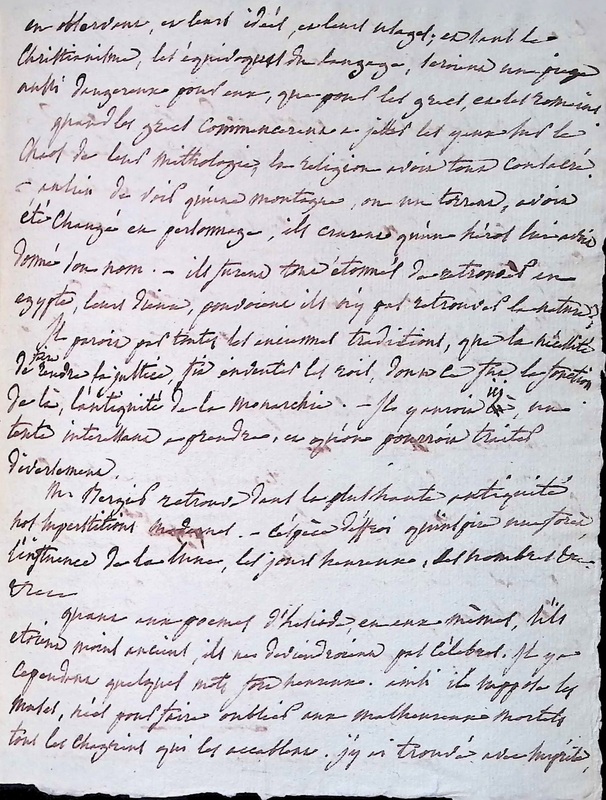 en observant, en leurs idées, en leurs usages; et sans le
Christianisme, les équivoques du langage, seroient un piège
aussi dangereux pour eux, que pour les grecs, et les romains
quand les grecs commencerent a jetter les yeux sur le
Chaos de leur mithologie, la religion avoit tout consacré.
au lieu de voir qu'une montagne, ou un torrent, avoit
été changé en personnage, ils crurent qu'un héros lui avoit
donné son nom. - ils furent tout étonnés de retrouver en
egypte, leurs dieux, pouvoient ils n'y pas retrouver la nature?
Il paroit par toutes les anciennes traditions, que la nécessité
de faire rendre la justice, fit inventer les rois, dont ce fut la fonction
de là, l'antiquité de la monarchie. - Il y auroit ici, un
texte interessant a prendre, et qu'on pourroit traiter
diversement.
Mr Bergier retrouve dans la plus haute antiquité
nos superstitions modernes. - l'espèce d'effroi qu'inspire une forêt,
l'influence de la lune, les jours heureux, les nombres &c
&c
quant aux poemes d'hesiode, en eux mêmes, s'ils
etoient moins anciens, ils ne deviendroient pas célebres. Il y a
cependant quelques mots fort heureux. ainsi il suppose les
muses, nées pour faire oublier aux malheureux mortels
tous les chagrins qui les accablent. j'y ai trouvé avec